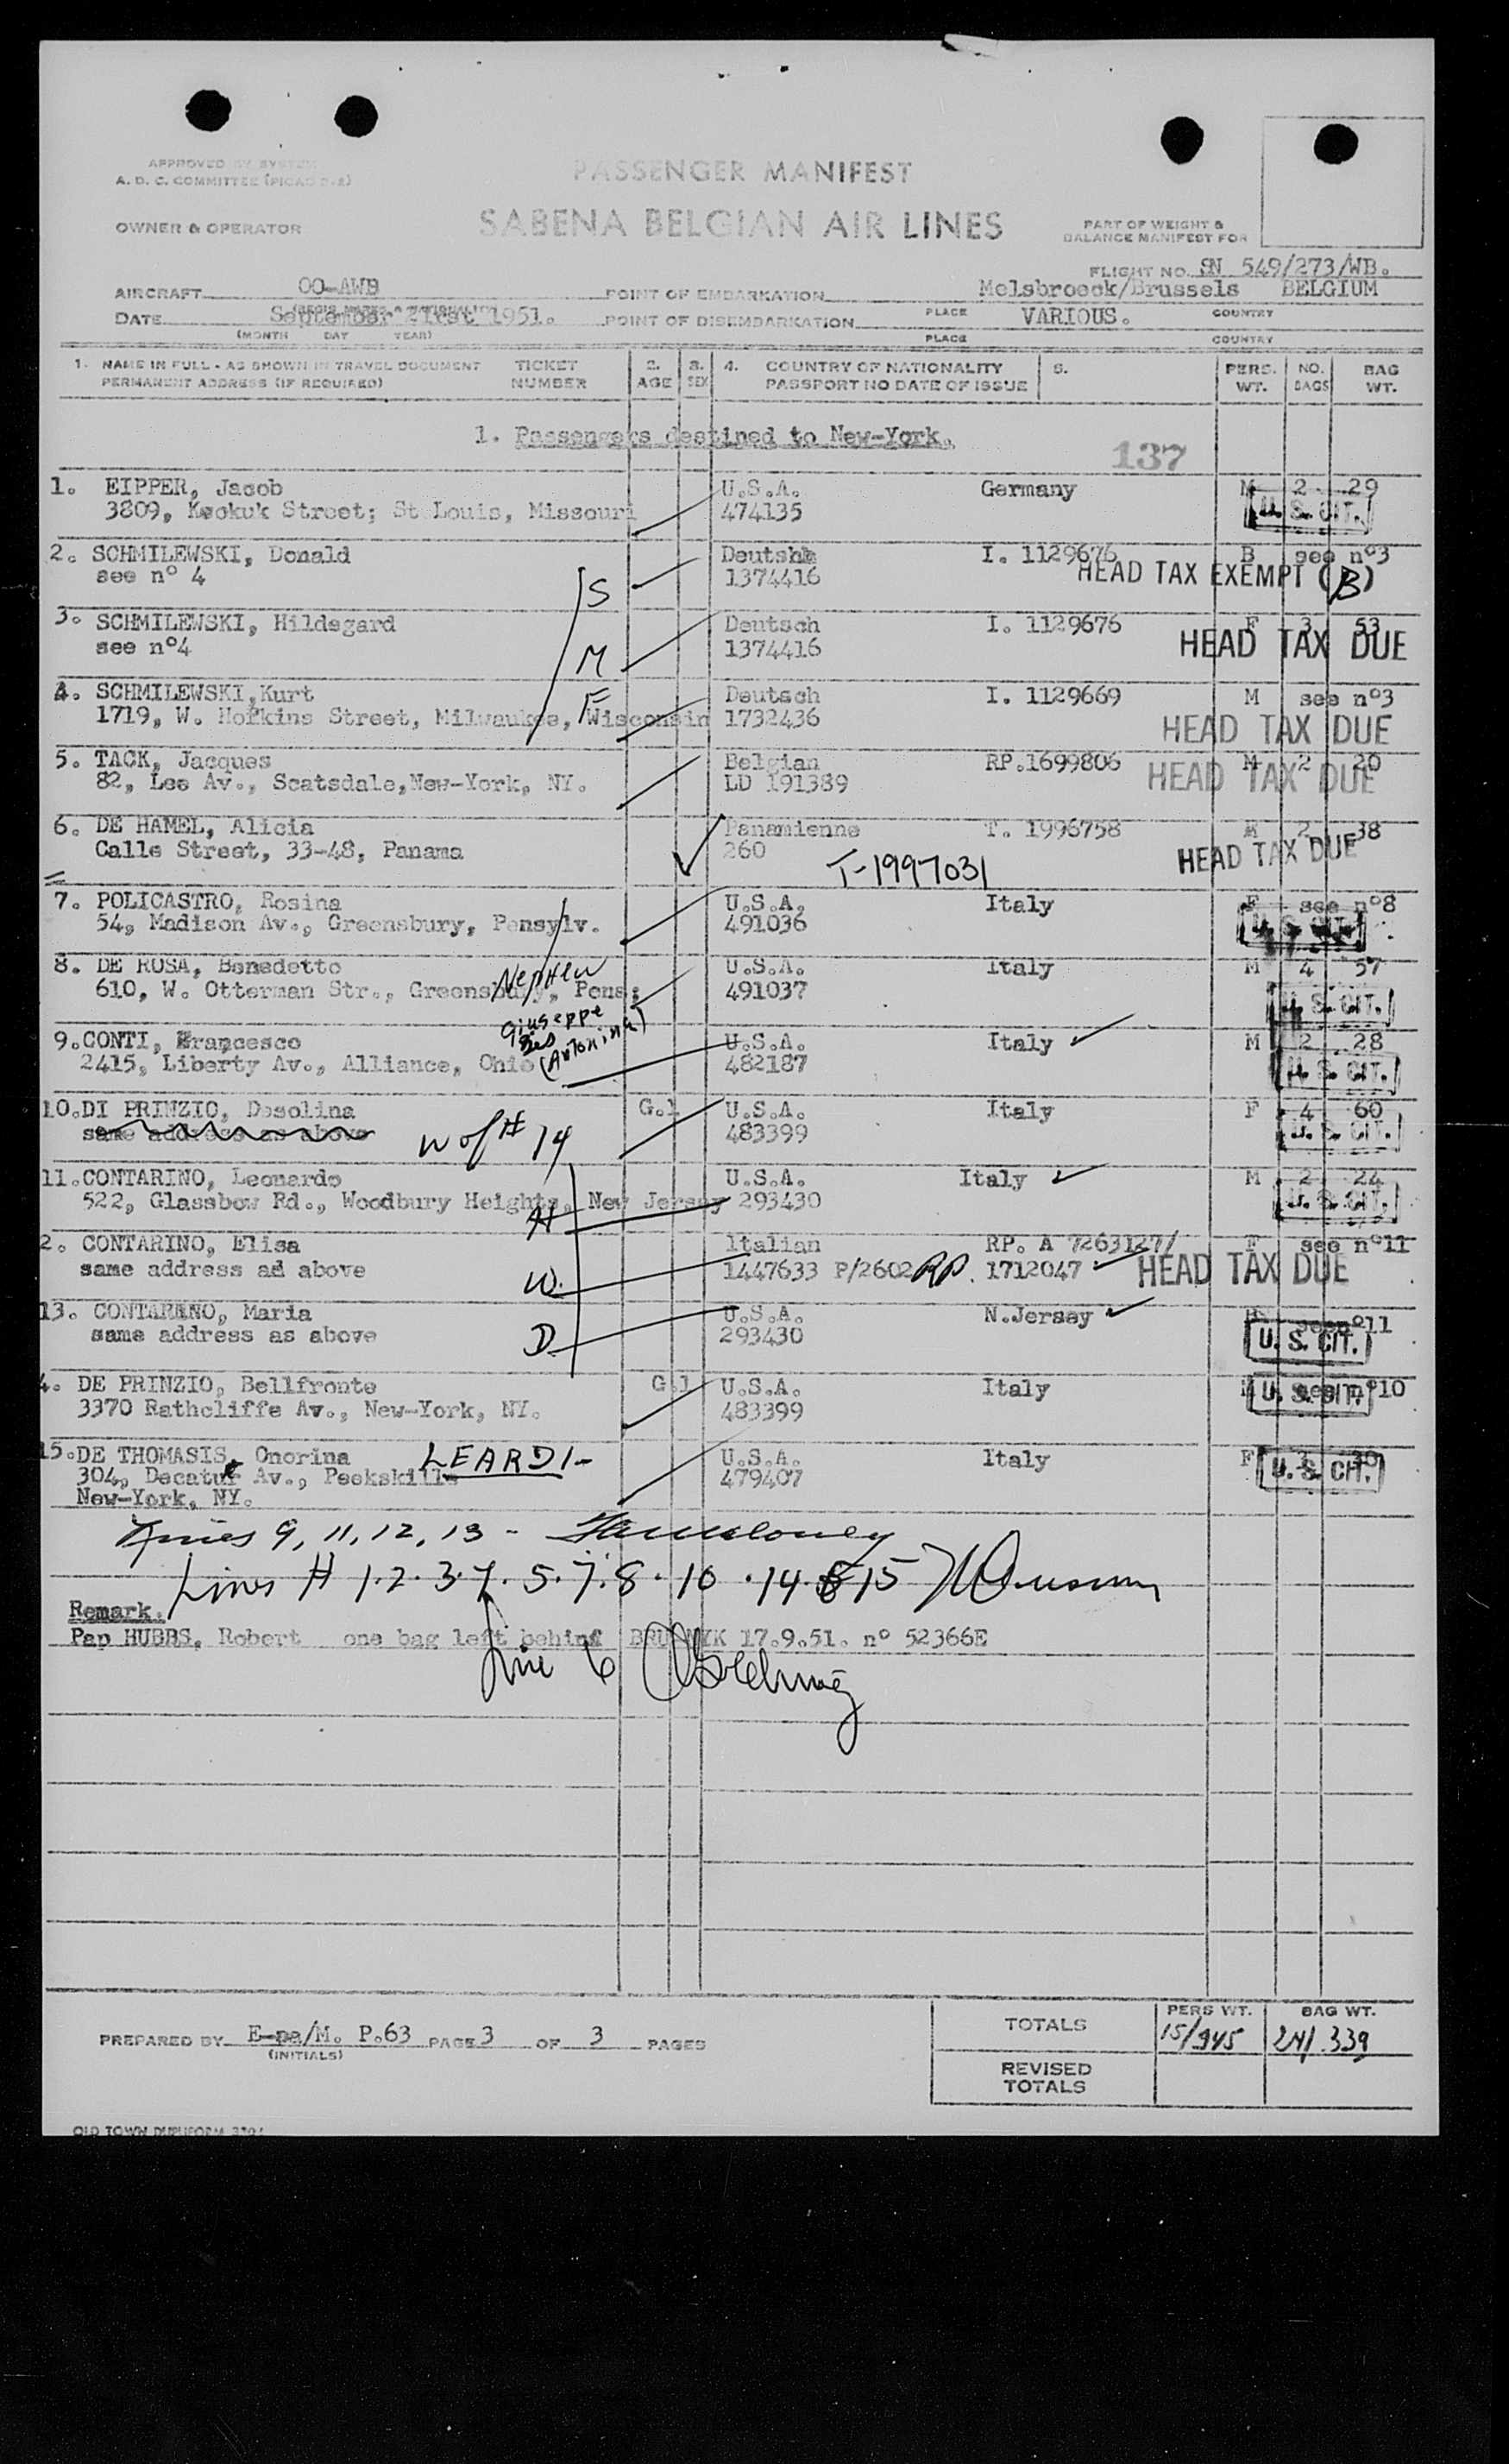 APPROVED BY SYSTEM
A. D. C. COMMITTEE
PASSENGER MANIFEST
OWNER & OPERATOR
SABENA BELGIAN AIR LINES
PART OF WEIGHT &
BALANCE MANIFEST FOR
FLIGHT NO. SN 549/273/WB.
AIRCRAFT OO-AWB POINT OF EMBARKATION Melsbroeck/Brussels BELGIUM
DATE September 21rst 1951. POINT OF DISEMBARKATION PLACE VARIOUS. COUNTRY
(MONTH DAY YEAR) PLACE COUNTRY
1. NAME IN FULL - AS SHOWN IN TRAVEL DOCUMENT TICKET 2. 3. 4. COUNTRY OF NATIONALITY 5. PERS. NO. BAG
PERMANENT ADDRESS (IF REQUIRED) NUMBER AGE SEX PASSPORT NO DATE OF ISSUE WT. BAGS WT.
1. Passengers destined to New-York.
137
1. EIPPER, Jacob U.S.A. Germany M 2 29
3809, Keokuk Street; St Louis, Missouri 474135 U. S. CIT.
2. SCHMILEWSKI, Donald Deutshe I. 1129676 B see n°3
see n° 4 S 1374416 HEAD TAX EXEMPT (B)
3. SCHMILEWSKI, Hildegard Deutsch I. 1129676 F 3 53
see n°4 M 1374416 HEAD TAX DUE
4. SCHMILEWSKI, Kurt F Deutsch I. 1129669 M see n°3
1719, W. Hofkins Street, Milwaukee, Wisconsin 1732436 HEAD TAX DUE
5. TACK, Jacques Belgian RP.1699806 M 2 20
82, Lee Av., Scatsdale,New-York, NY. LD 191389 HEAD TAX DUE
6. DE HAMEL, Alicia Panamienne T. 1996758 2 38
Calle Street, 33-48, Panama 260 T-1997031 HEAD TAX DUE
7. POLICASTRO, Rosina U.S.A. Italy F see n°8
54, Madison Av., Greensbury, Pensylv. 491036 U. S. CIT.
8. DE ROSA, Benedetto Nephew U.S.A. Italy M 4 57
610, W. Otterman Str., Greensbury, Pens. 491037 U. S. CIT.
Giuseppe
9.CONTI, Francesco (Antonina) U.S.A. Italy M 2 28
2415, Liberty Av., Alliance, Ohio 482187 U. S. CIT.
10.DI PRINZIO, Desolina G.1 U.S.A. Italy F 4 60
same address as above W of # 14 483399 U. S. CIT.
11.CONTARINO, Leonardo U.S.A. Italy M 2 24
522, Glassbow Rd., Woodbury Heights, New Jersey 293430 U. S. CIT.
H
2. CONTARINO, Elisa Italian RP. A 7263127/ F see n°11
same address ad above W. 1447633 P/2602 RP. 1712047 HEAD TAX DUE
13. CONTARINO, Maria U.S.A. N.Jersey see n°11
same address as above D 293430 U. S. CIT.
4. DE PRINZIO, Bellfronte G.1 U.S.A. Italy M see n°10
3370 Rathcliffe Av., New-York, NY. 483399 U. S. CIT.
15.DE THOMASIS, Onorina LEARDI- U.S.A. Italy F
304, Decatur Av., Peekskill 479407 U. S. CIT.
New-York, NY.
Lines 9, 11, 12, 13 -
Lines # 1.2.3.4.5.7.8.10.14.&15
Remark.
Pap HUBBS, Robert one bag left behind BRU NYK 17.9.51. n° 52366E
Line 6
PREPARED BY E-pa/M. P.63 PAGE 3 OF 3 PAGES
(INITIALS)
TOTALS PERS WT. 15/945 BAG WT. 24/.339
REVISED
TOTALS
OLD TOWN DUPLIFORM